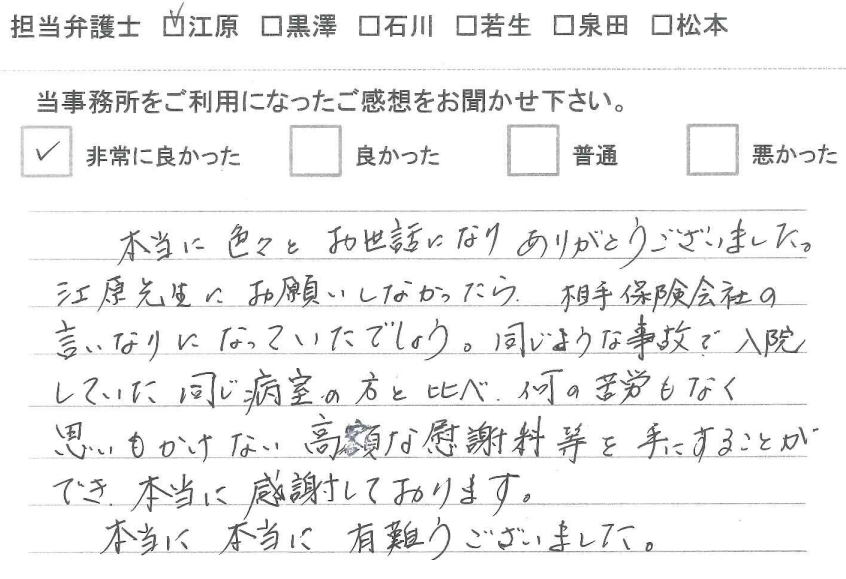 担当弁護士 ☑江原 □黒澤 □石川 □若生 □泉田 □松本
当事務所をご利用になったご感想をお聞かせ下さい。
☑ 非常に良かった □ 良かった □ 普通 □ 悪かった
本当に 色々と お世話になり ありがとうございました。
江原先生に お願いしなかったら、相手保険会社の
言いなりに なっていたでしょう。同じような事故で 入院
していた 同じ病室の 方と 比べ、何の苦労もなく
思いもかけない 高額な慰謝料等を 手にすることが
でき、本当に 感謝しております。
本当に 本当に 有難うございました。